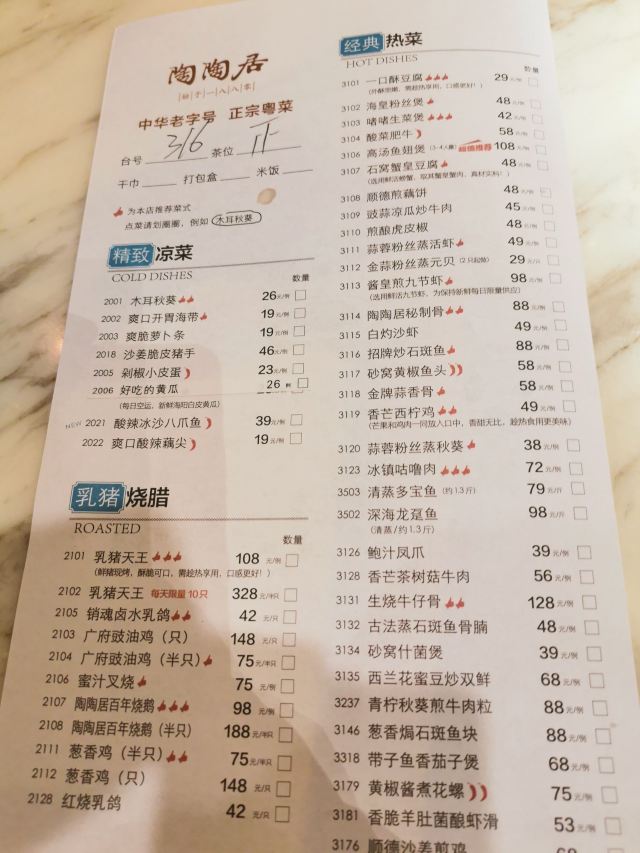 陶陶居
始于一八八零
中华老字号 正宗粤菜
台号 316 茶位 正
千巾 打包盒 米饭
为本店推荐菜式
点菜请划圈圈，例如 木耳秋葵
精致 凉菜
COLD DISHES
数量
2001 木耳秋葵 26元/例
2002 爽口开胃海带 19元/例
2003 爽脆萝卜条 19元/例
2018 沙姜脆皮猪手 46元/例
2005 剁椒小皮蛋 23元/例
2006 好吃的黄瓜 26 例
(每日空运，新鲜海阳白皮黄瓜)
NEW 2021 酸辣冰沙八爪鱼 39元/例
2022 爽口酸辣藕尖 19元/例
乳猪 烧腊
ROASTED
数量
2101 乳猪天王 108 元/例
(鲜猪现烤，酥脆可口，需趁热享用，口感更好！)
2102 乳猪天王 每天限量 10只 328元/半只
2105 销魂卤水乳鸽 42 元/只
2103 广府豉油鸡（只） 148 元/只
2104 广府豉油鸡（半只） 75元/半只
2106 蜜汁叉烧 75 元/例
2107 陶陶居百年烧鹅 98 元/例
2108 陶陶居百年烧鹅（半只） 188元/半只
2111 葱香鸡（半只） 75元/半只
2112 葱香鸡（只） 148 元/只
2128 红烧乳鸽 42 元/只
经典 热菜
HOT DISHES
数量
3101 一口酥豆腐 29元/例
(外酥里嫩，需趁热享用，口感更好！)
3102 海皇粉丝煲 48元/例
3103 啫啫生菜煲 42元/例
3104 酸菜肥牛 58元/例
3106 高汤鱼翅煲 (3-4人量) 超值推荐 108元/例
3107 石窝蟹皇豆腐 48元/例
(选用鲜活螃蟹，取其蟹皇蟹肉，真材实料！)
3108 顺德煎藕饼 48元/例
3109 豉蒜凉瓜炒牛肉 45元/例
3110 煎酿虎皮椒 48元/例
3111 蒜蓉粉丝蒸活虾 49元/例
3112 金蒜粉丝蒸元贝 (2只起做) 29元/只
3113 酱皇煎九节虾 98元/例
(选用鲜活九节虾，为保持新鲜每日限量供应)
3114 陶陶居秘制骨 88元/例
3115 白灼沙虾 49元/例
3116 招牌炒石斑鱼 88元/例
3117 砂窝黄椒鱼头 58元/例
3118 金牌蒜香骨 58元/例
3119 香芒西柠鸡 49元/例
(芒果和鸡肉一同放入口中，香甜无比，趁热食用更美味)
3120 蒜蓉粉丝蒸秋葵 38元/例
3123 冰镇咕噜肉 72元/例
3503 清蒸多宝鱼 (约1.3斤) 79元/斤
3502 深海龙趸鱼 98元/斤
(清蒸/约1.3斤)
3126 鲍汁凤爪 39元/例
3128 香芒茶树菇牛肉 56元/例
3131 生烧牛仔骨 128元/例
3132 古法蒸石斑鱼骨腩 48元/例
3134 砂窝什菌煲 39元/例
3135 西兰花蜜豆炒双鲜 68元/例
3237 青柠秋葵煎牛肉粒 88元/例
3146 葱香焗石斑鱼块 88元/例
3318 带子鱼香茄子煲 68元/例
3179 黄椒酱煮花螺 75元/例
3181 香脆羊肚菌酿虾滑 53元/例
3176 顺德沙姜煎鸡 68